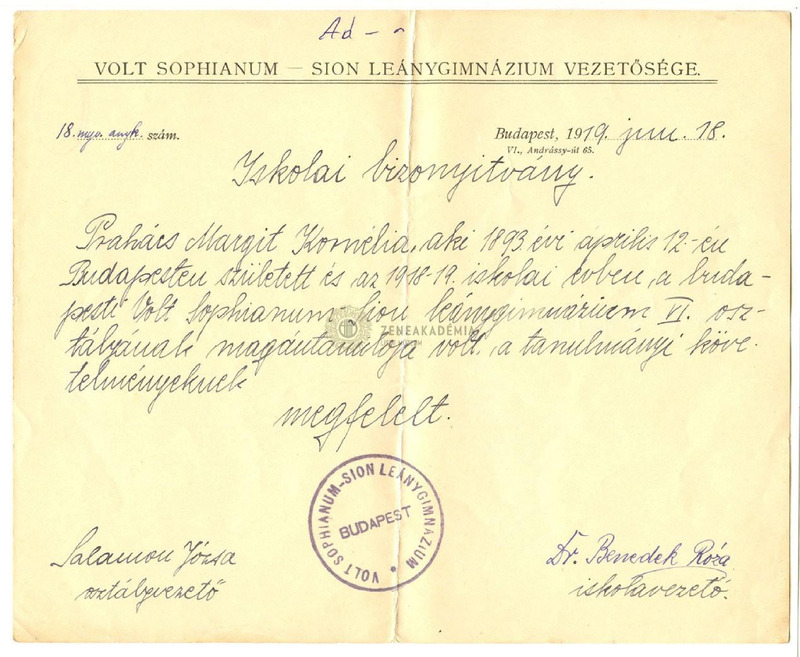 Ad - -
VOLT SOPHIANUM — SION LEÁNYGIMNÁZIUM VEZETŐSÉGE.
18. nyv. anyk. szám.
Budapest, 1919. jun. 18.
VI., Andrássy-út 65.
Iskolai bizonyitvány.
Prahács Margit Kornélia, aki 1893 évi április 12.-én
Budapesten született és az 1918-19. iskolai évben, a buda-
pesti Volt Sophianum Sion leánygimnázium VI. osz-
tályának magántanulója volt, a tanulmányi köve-
telményeknek
megfelelt.
ZENEAKADÉMIA
VOLT SOPHIANUM-SION LEÁNYGIMNÁZIUM
BUDAPEST
Salamon Józsa
osztályvezető
Dr. Benedek Róza
iskolavezető.